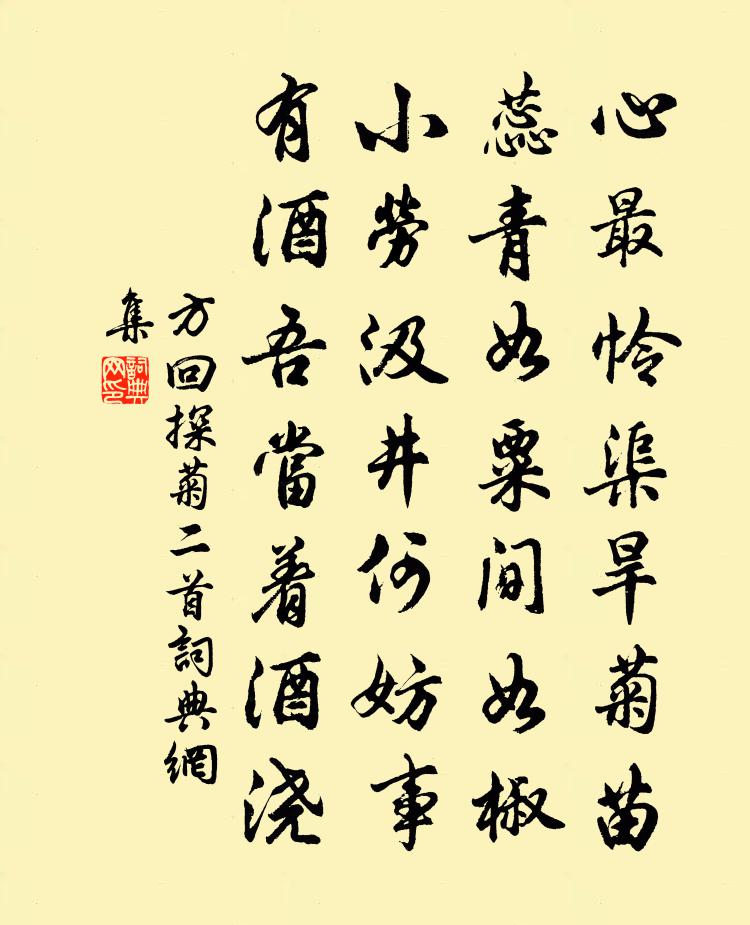 心最怜渠旱菊苗
蕊青如粟间如椒
小勞汲井何妨事
有酒吾當着酒浇
方回探菊二首詞典網
集
詞典网印